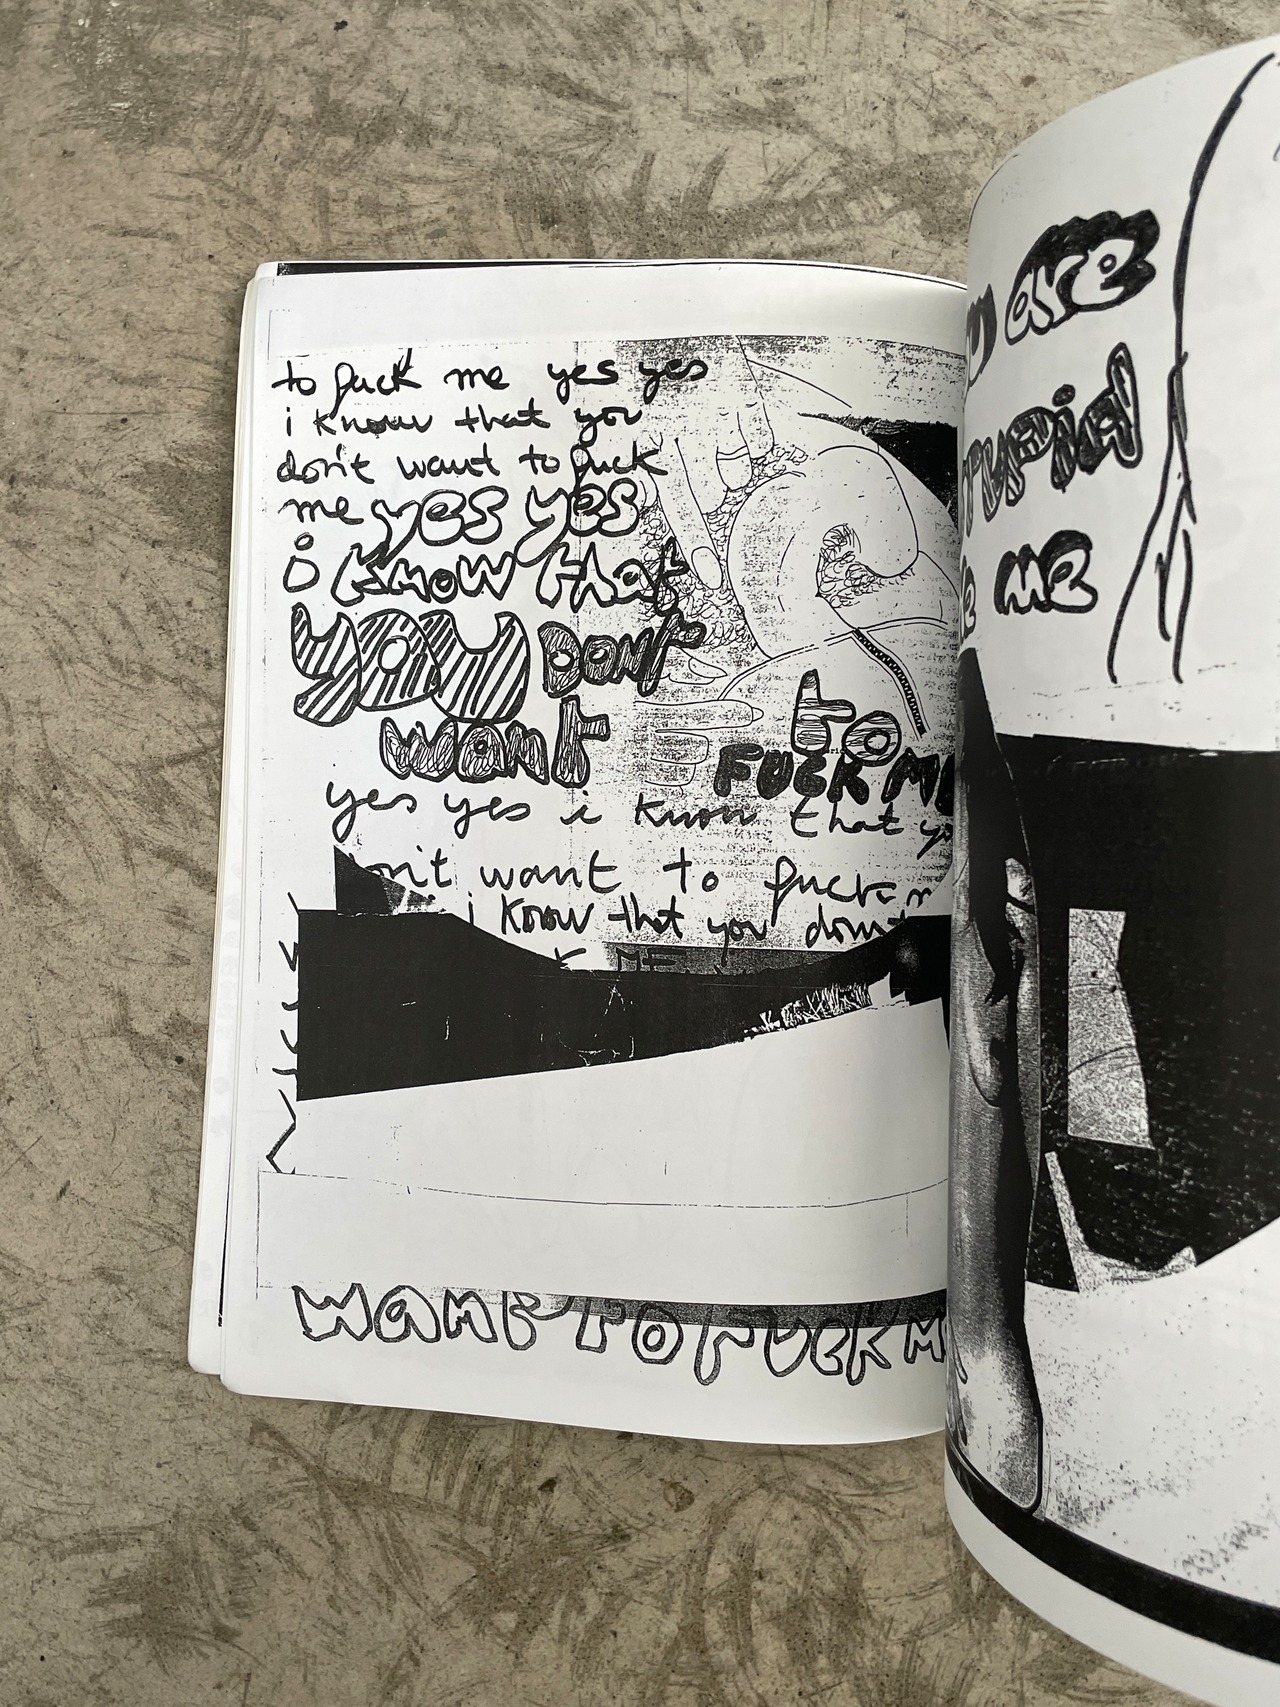 to fuck me yes yes
i know that you
don't want to fuck
me yes yes
i know that
you don't
want to
FUCK ME
yes yes i know that yo
on't want to fuck m
i know that you don't
K ME
WANT TO FUCK M
are
me